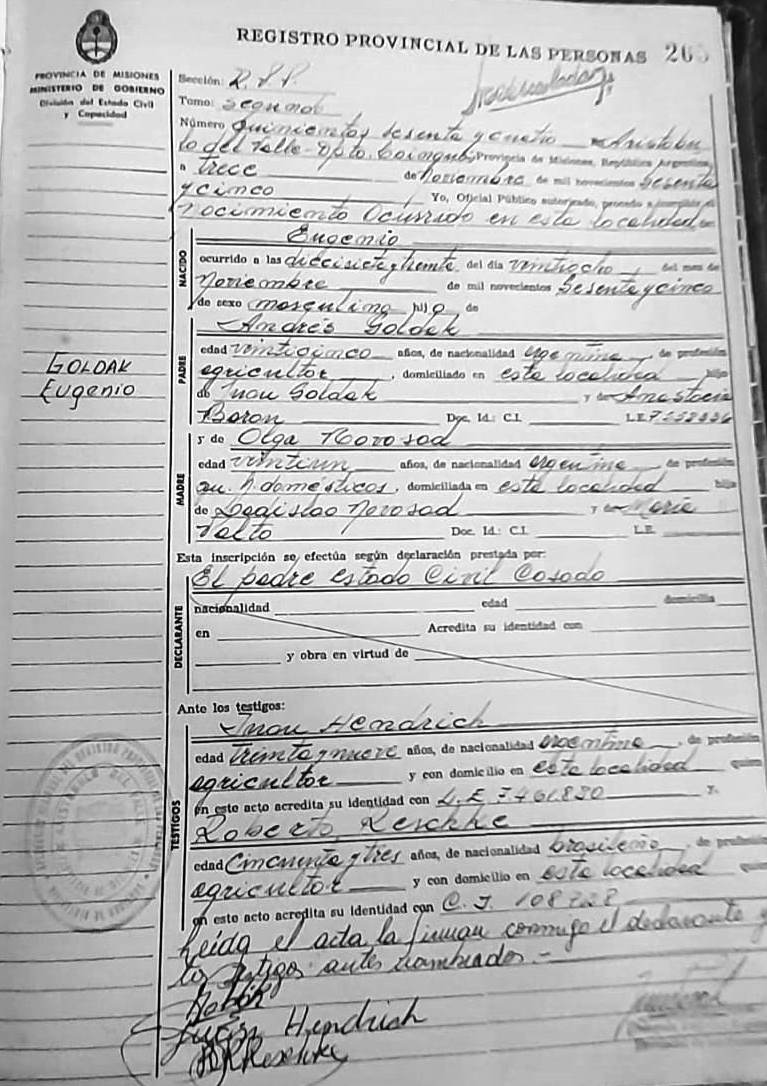 REGISTRO PROVINCIAL DE LAS PERSONAS 265
PROVINCIA DE MISIONES
MINISTERIO DE GOBIERNO
División del Estado Civil
y Capacidad
Sección: R.P.P.
Tomo: Segundo
Número quinientos sesenta y cuatro Aristóbu
lo del Valle - Dpto. Cainguás, Provincia de Misiones, República Argentina,
a trece de Noviembre de mil novecientos sesenta
y cinco Yo, Oficial Público autorizado, procedo a
nacimiento Ocurrido en esta localidad
NACIDO
Eugenio
ocurrido a las diecisiete y treinta del día veintiocho, del mes de
Noviembre de mil novecientos Sesenta y cinco
de sexo masculino hijo de
PADRE
Andrés Goldak
edad veinticinco años, de nacionalidad argentina, de profesión
agricultor, domiciliado en esta localidad hijo
de Juan Goldak y de Anastacia
Boron Doc. Id.: C.I. L.E.
GOLDAK
Eugenio
MADRE
y de Olga Novosad
edad veintiun años, de nacionalidad argentina de profesión
qu. h. domésticos, domiciliada en esta localidad hija
de Ladislao Novosad y de María
Doc. Id.: C.I. L.E.
Esta inscripción se efectúa según declaración prestada por:
DECLARANTE
El padre estado Civil Casado
nacionalidad edad domicilia
en Acredita su identidad con
y obra en virtud de
Ante los testigos:
TESTIGOS
Juan Hendrich
edad treinta y nueve años, de nacionalidad argentina, de profesión
agricultor y con domicilio en esta localidad quien
en este acto acredita su identidad con L.E. 7461.830 y.
Roberto Reschke
edad Cincuenta y tres años, de nacionalidad brasileño, de profesión
agricultor y con domicilio en esta localidad quien
en este acto acredita su identidad con C.I. 108728
Leída el acta la firman conmigo el declarante y
los testigos antes nombrados.-
Hendrich
Reschke